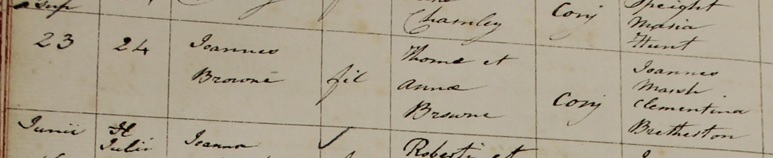 Chamley Conj Speight
Maria
Hunt
23 24 Joannes Browne fil Thomæ et
Annæ
Browne Conj Joannes
Marsh
Clementina
Bretherton
Junii Julii Joanna Roberti et